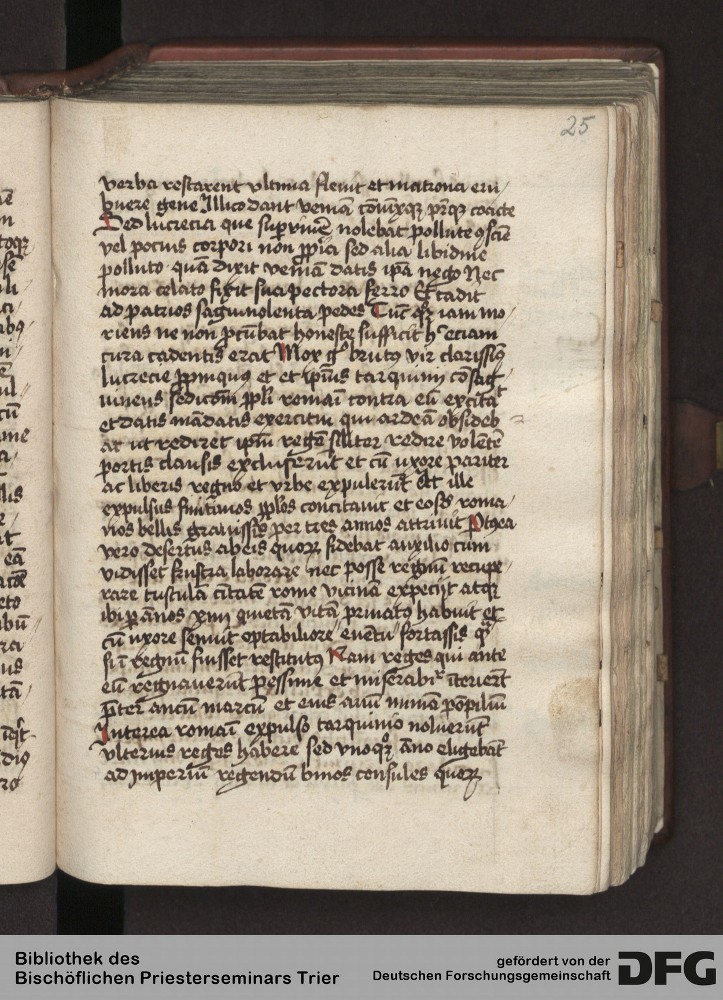 25
verba restarent ultima flevit et matrona eru/
buere gene Illico dant veniā cōiunxqȝ pr̄qȝ coacte
Sed lucrecia que supvivē nolebat pollute ꝯsciē
vel pocius corpori non ꝓpria sed alia libidine
polluto quā dixit veniā datis ip̄a nego Nec
mora celato figit sua pectora ferro Et cadit
ad patrios sagwinolenta pedes Tūc qȝ iam mo/
riens ne non ꝓcūbat honeste sufficit hͦ eciam
cura cadentis erat Mox gͦ brutꝰ vir clarissiꝰ
lucrecie ꝓpinquus et et ipīus tarquinii cōsag/
uineus sedicōem ppl̄i romāi contra eū excitat
et datis mādatis exercitui qui ardeā obsideb
at ut rediret ipm̄ regē silitor redire volētē
portis clausis excluserūt et cū uxore pariter
ac liberis regno et urbe expulerūt Et ille
expulsus finitimos pp̄los concitavit et eosdē roma/
nos bellis gravissīs per tres annos attrivit Ptͣea
vero desertus ab eis quorꝝ fidebat auxilio cum
vidisset frustra laborare nec posse regnū recupe/
rare tusculā civitatē rome vicinā expeciit atqȝ
ibi ꝑ ānos xiiii quietā vitā privato habuit et
cū uxore senuit optabiliore evētu fortassis qͣ
si ī regnū fuisset restitutꝰ Nam reges qui ante
eū regnaverūt pessime et miserabilr̄ īterierūt
p̄ter ancū marcū et eius avū numā pōpiliū
Interea romāi expulso tarquinio noluerūt
ulterius reges habere sed unoqȝ āno eligebāt
ad Imperiū regendū binos consules quorꝝ
Bibliothek des
Bischöflichen Priesterseminars Trier
gefördert von der
Deutschen Forschungsgemeinschaft
DFG